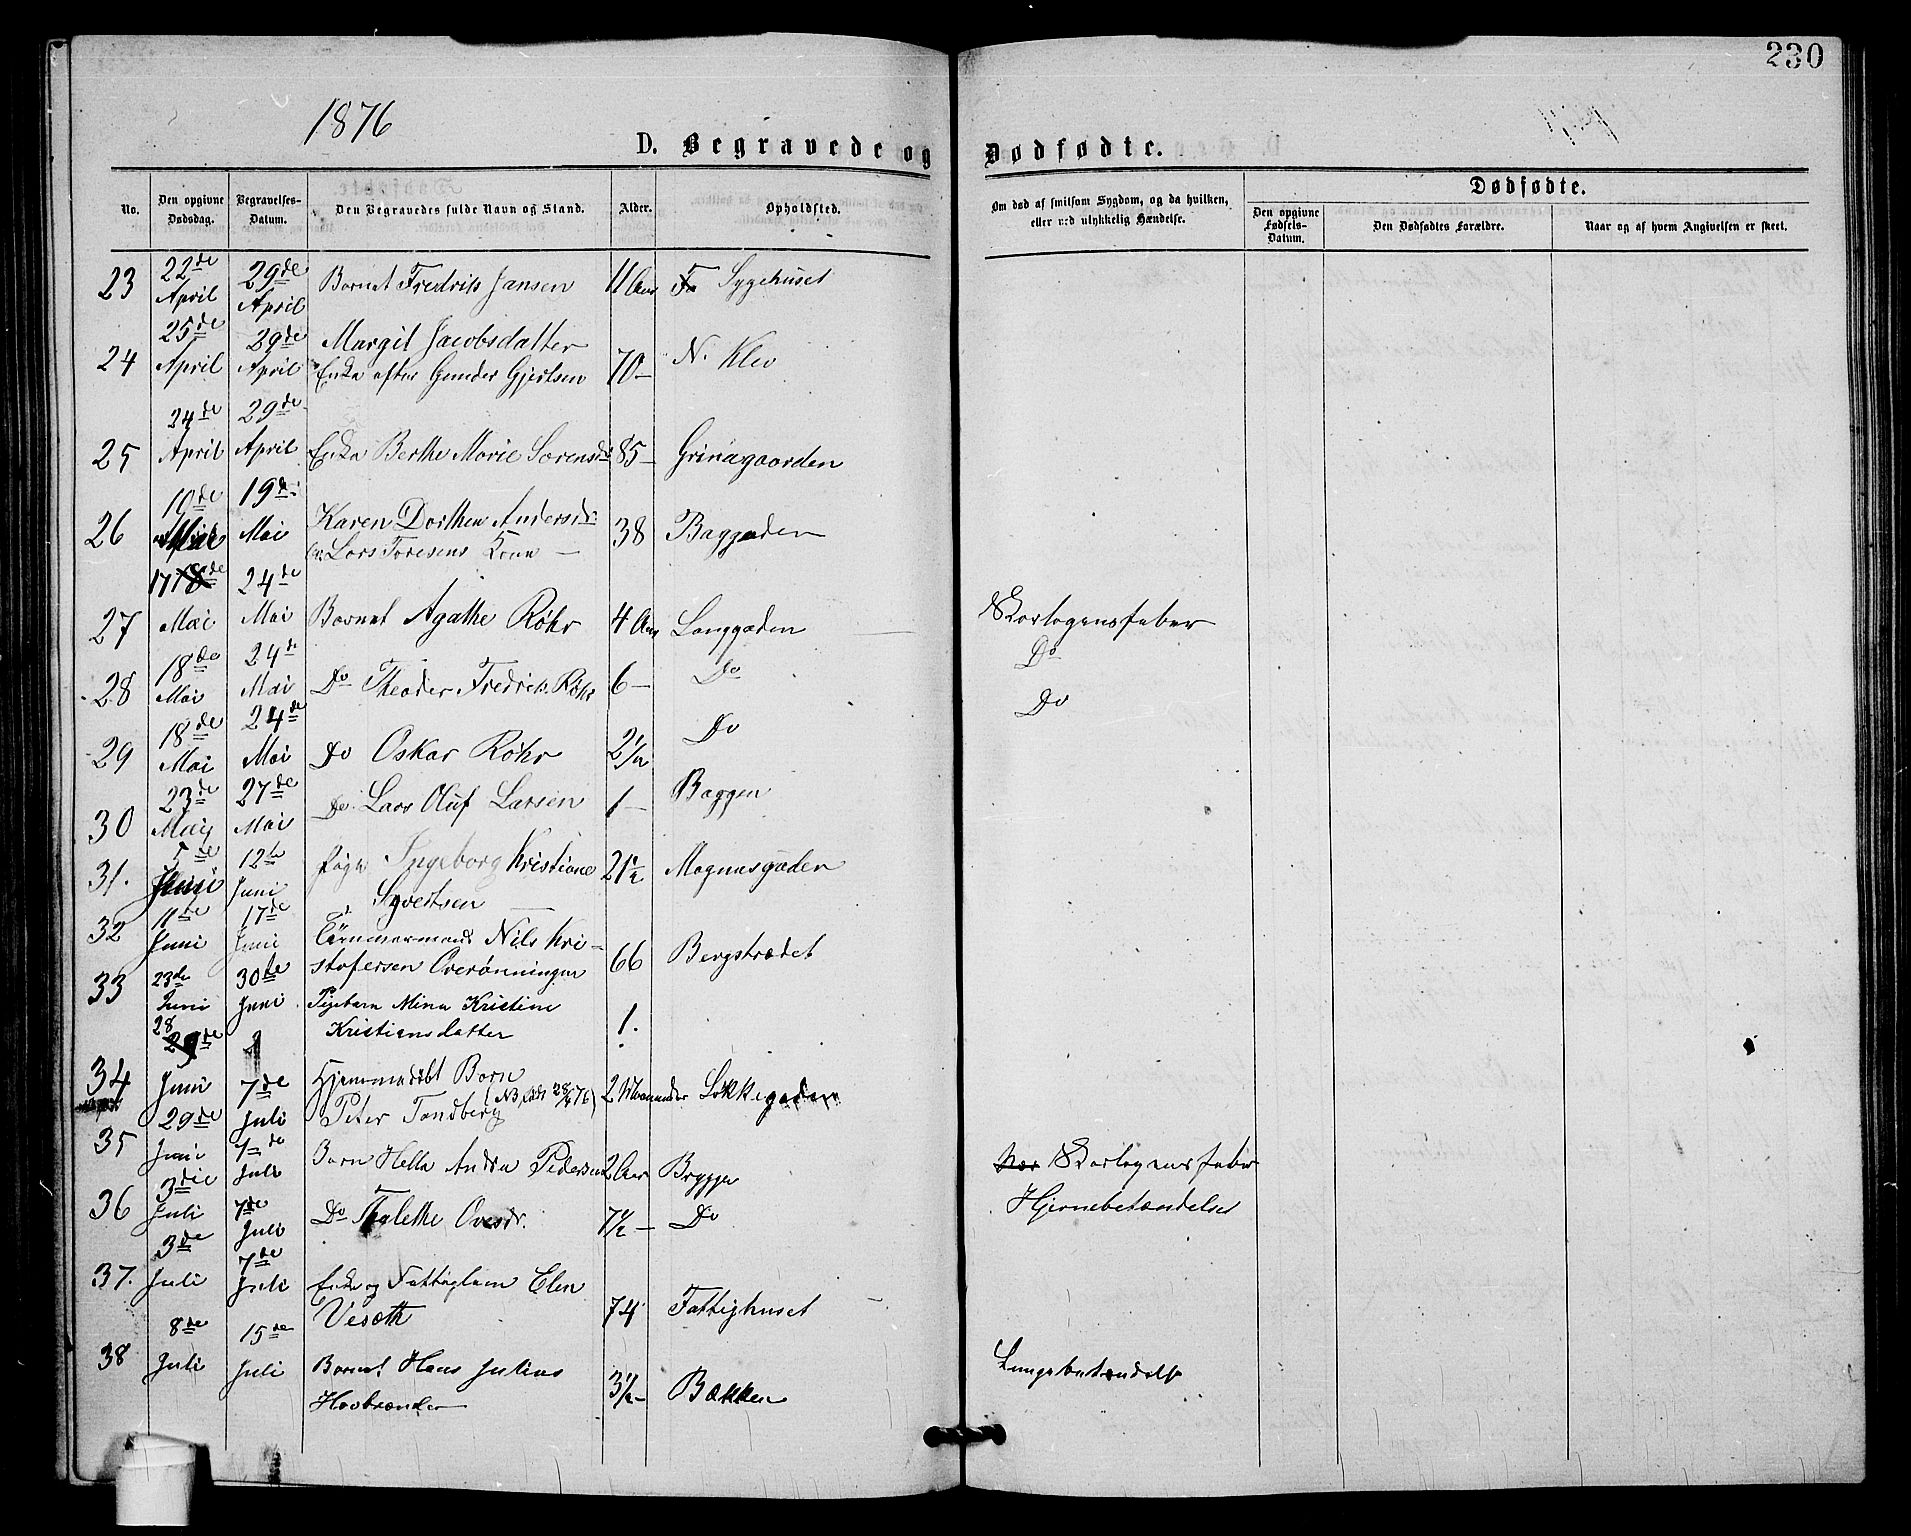 230
1876
D. Begravede og Dødfødte.
No. Den opgivne Dødsdag. Begravelses-Datum. Den Begravedes fulde Navn og Stand. Alder. Opholdsted. Om død af smitsom Sygdom, og da hvilken, eller ved ulykkelig Hændelse. Dødfødte. Den opgivne Fødsels-Datum. Den Dødfødtes Forældre. Naar og af hvem Angivelsen er skeet.
23 22de April 29de April Barnet Fredrik Jansen 11 Aar Sygehuset
24 25de April 29de April Margit Jacobsdatter
Enke efter Gunder Gjertsen 70 — N. Klev
25 24de April 29de April Enke Berthe Marie Sorensdr 85 — Grinagaarden
26 10de Mai 19de Mai Karen Dorthea Andersdr:
Lars Toresens Kone — 38 Baggaden
27 17 18de Mai 24de Mai Barnet Agathe Røhr 4 Aar Langgaden Skarlagensfeber
28 18de Mai 24de Mai Do Theodor Fredrik Røhr 6 — Do Do
29 18de Mai 24de Mai Do Oskar Røhr 2 1/2 Do Do
30 23de Mai 27de Mai Do Lars Oluf Larsen 1 — Baggen
31. 5de Juni 12te Juni Pige Ingeborg Kristiane
Syvertsen 21 1/2 Magnusgaden
32 11de Juni 17de Juni Tømmermand Nils Kri-
stofersen Overønningen 66 Bergstrædet
33 23de Juni 30te Juni Pigebarn Mina Kristine
Kristiansdatter 1.
34 28 29de Juni 7de Juli Hjemmedøbt Barn
Peter Tandberg 2 Maaneder Løkkegaden
35 29de Juni 7de Juli Barn Hella Andrea Pedersen 2 Aar Brygga Skarlagensfeber
36 3die Juli 7de Juli Do Thalethe Ovesdr. 7 1/2 — Do Hjernebetændelse
37. 3de Juli 7de Juli Enke og Fattiglem Elen
Vesæth 74 Fattighuset
38 8de Juli 15de Juli Barnet Hans Julius
Havbrænder 3 1/2 — Bækken Lungebetændelse